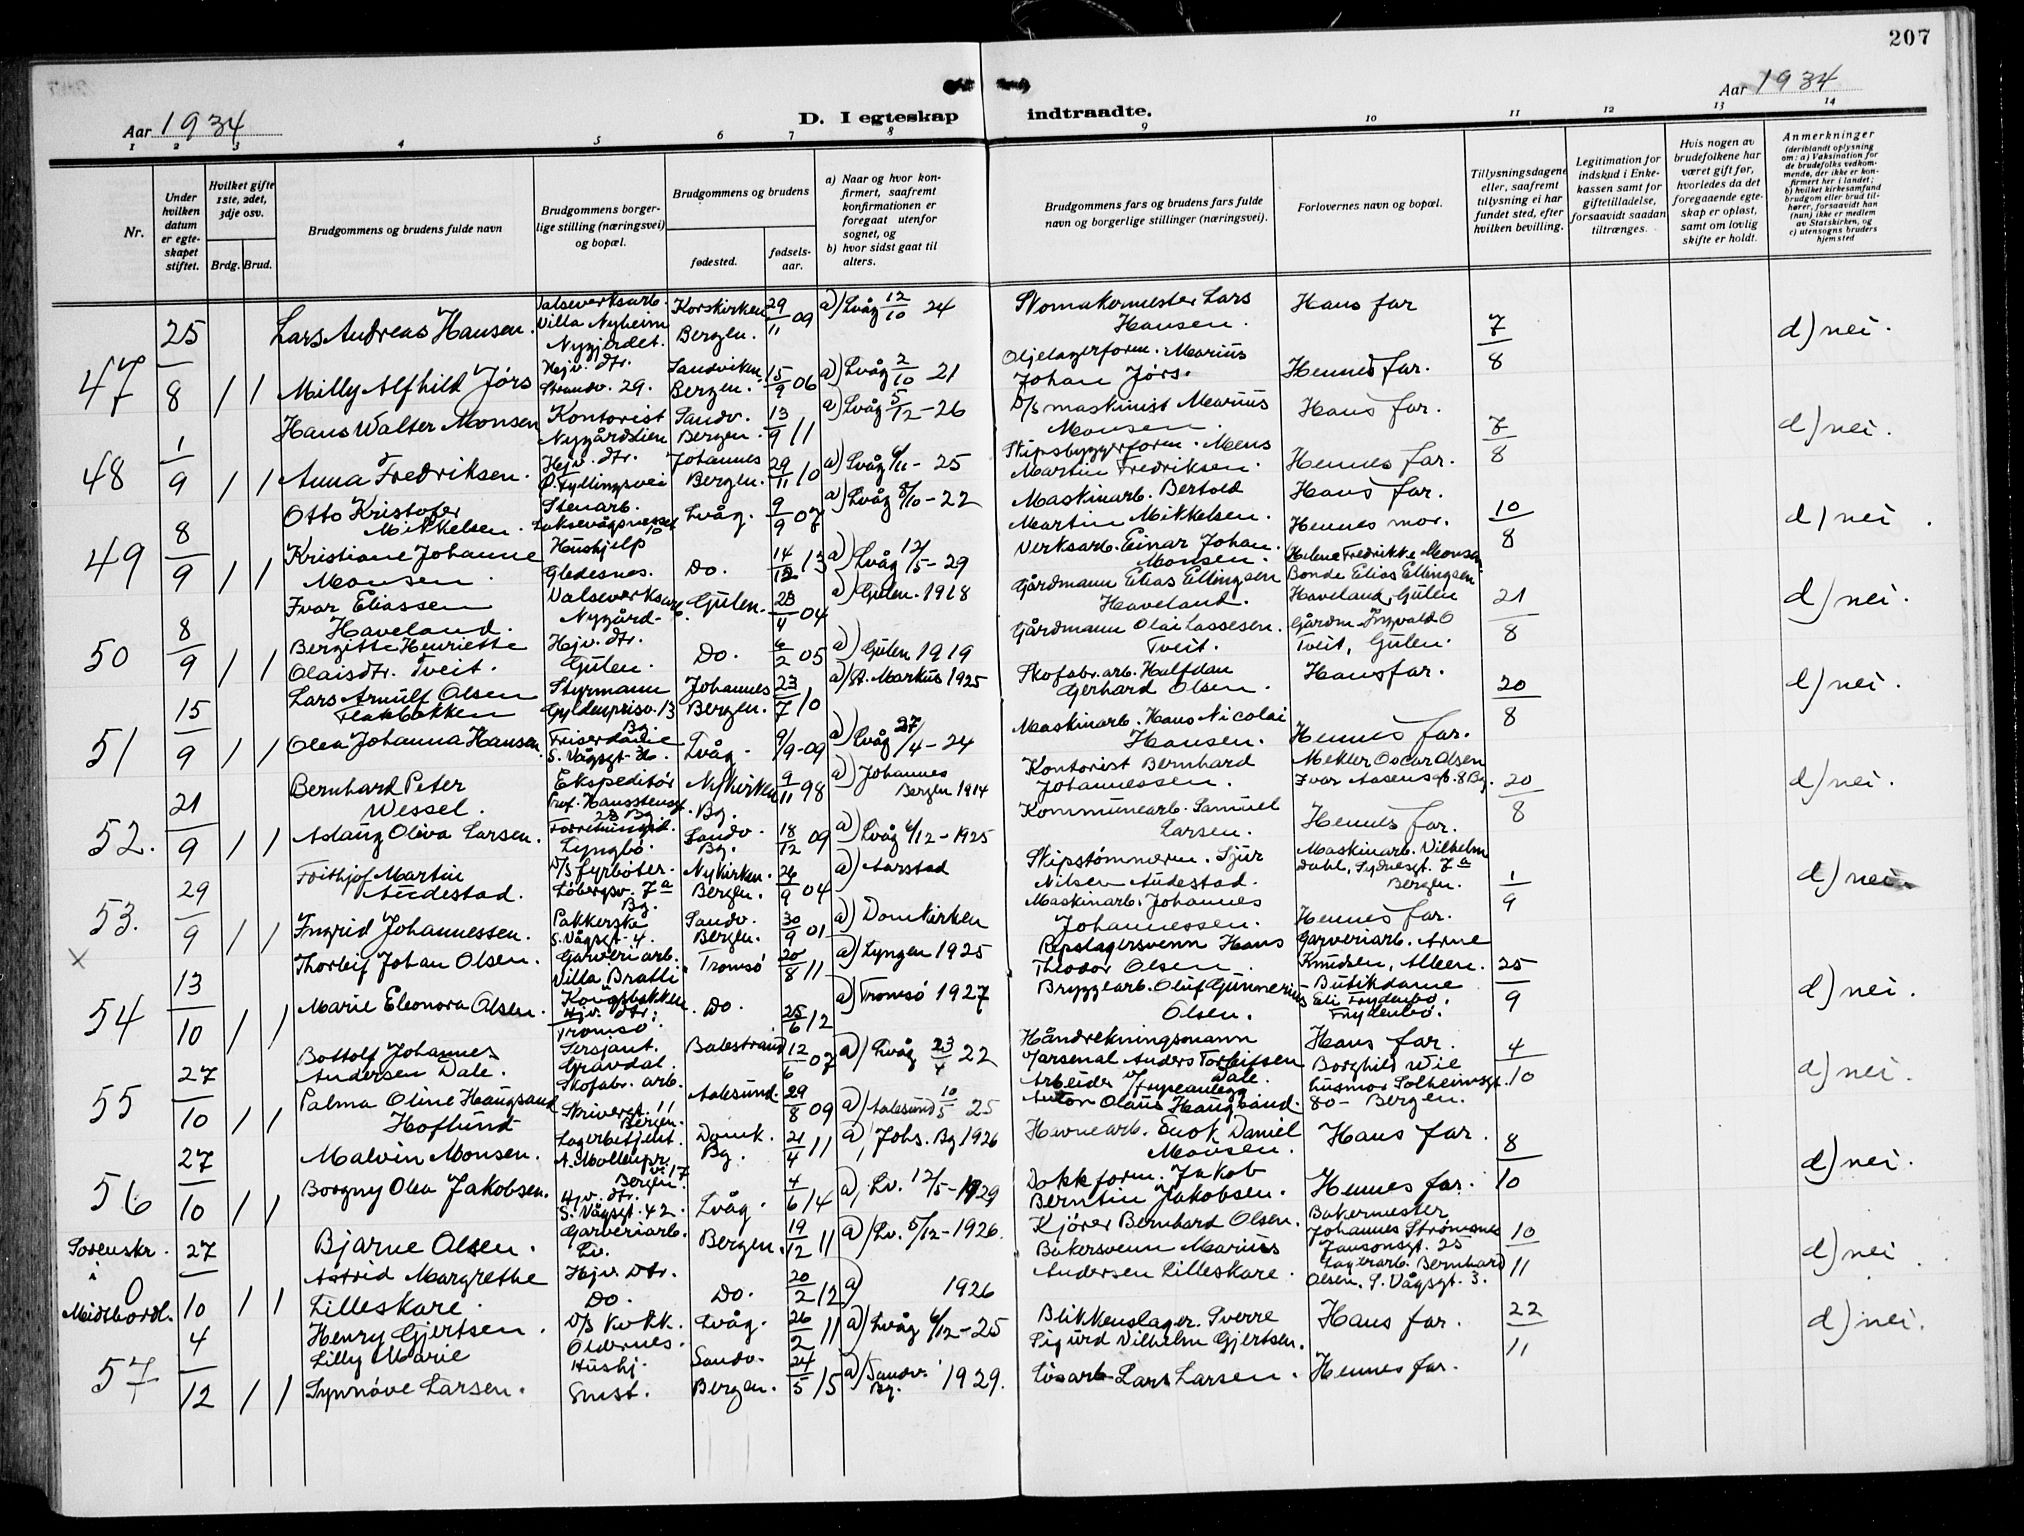 207
Aar 1934
D. I egteskap indtraadte.
Aar 1934
1 2 3 4 5 6 7 8 9 10 11 12 13 14
Nr.
Under hvilken datum er egteskapet stiftet.
Hvilket gifte 1ste, 2det, 3dje osv.
Brdg. Brud.
Brudgommens og brudens fulde navn
Brudgommens borgerlige stilling (næringsvei) og bopæl.
Brudgommens og brudens
fødested.
fødselsaar.
a) Naar og hvor konfirmert, saafremt konfirmationen er foregaat utenfor sognet, og
b) hvor sidst gaat til alters.
Brudgommens fars og brudens fars fulde navn og borgerlige stillinger (næringsvei).
Forlovernes navn og bopæl.
Tillysningsdagene eller, saafremt tillysning ei har fundet sted, efter hvilken bevilling.
Legitimation for indskud i Enkekassen samt for giftetilladelse, forsaavidt saadan tiltrænges.
Hvis nogen av brudefolkene har været gift før, hvorledes da det foregaaende egteskap er opløst, samt om lovlig skifte er holdt.
Anmerkninger (deriblandt oplysning om: a) Vaksination for de brudefolks vedkommende, der ikke er konfirmert her i landet; b) hvilket kirkesamfund brudgom eller brud tilhører, forsaavidt han (hun) ikke er medlem av Statskirken, og c) utensogns bruders hjemsted
47 25/8 1 1 Lars Andreas Hansen. Valseverksarb. Villa Nyheim Nygjerdet. Korskirken Bergen. 29/11 09 a) Lvåg 12/10 24 Skomakermester Lars Hansen. Hans far 7/8 d) nei.
Milly Alfhild Jørs Hejv. dtr. Strandv. 29. Sandviken Bergen. 15/9 06 a) Lvåg 2/10 21 Oljelagerform. Marius Johan Jørs. Hennes far.
48 1/9 1 1 Hans Walter Monsen Kontorist Nygårdslien Sandv. Bergen. 13/9 11 a) Lvåg 5/12-26 D/s maskinist Marius Monsen. Hans far. 7/8 d) nei.
Anna Fredriksen. Hejv. dtr. Fyllingsvei Johannes Bergen. 29/11 10 a) Lvåg 6/11-25 Skipsbyggerform. Mons Martin Fredriksen. Hennes far.
49 8/9 1 1 Otto Kristofer Mikkelsen. Stenarb. Laksevågsnesset 10 Lvåg. 9/9 07 a) Lvåg 8/10-22 Maskinarb. Bertold Martin Mikkelsen. Hans far. 10/8 d) nei.
Kristiane Johanne Monsen. Hushjelp Gledesnes. Do. 14/12 13 a) Lvåg 12/5-29 Verksarb. Einar Johan Monsen. Hennes mor. Helene Fredrikke Monsen
50 8/9 1 1 Ivar Eliassen Haveland. Valseverksarb. Nygård- Gulen. 28/4 04 a) Gulen. 1918 Gårdmann Elias Ellingsen Haveland. Bonde Elias Ellingsen Haveland, Gulen 21/8 d) nei.
Bergitte Henriette Olaisdtr. Tveit. Hejv. dtr. Gulen. Do. 6/2 05 a) Gulen 1919 Gårdmann Olai Lassesen. Tveit. Gårdm. Ingvald O Tveit, Gulen.
51 15/9 1 1 Lars Arnulf Olsen Flakbakken Styrmann Gyldenprisv. 13 Bg. Johannes Bergen. 23/7 10 a) St. Markus 1925 Skofabr. arb. Halfdan Gerhard Olsen. Hans far. 20/8 d) nei.
Olea Johanna Hansen. Friserdame S. Vågsgt. 36. Lvåg. 9/9-09 a) Lvåg 27/4-24 Maskinarb. Hans Nicolai Hansen. Hennes far.
52. 21/9 1 1 Bernhard Peter Wessel. Ekspeditør Prof. Hansstensgt. 28 Bg. Nykirken Bg. 9/11 98 a) Johannes Bergen 1914 Kontorist Bernhard Johannessen. Mekler Oscar Olsen Ivar Aasensgt. 8 Bg. 20/8 d) nei.
Aslaug Oliva Larsen. Lyngbø. Sandv. Bg. 18/12 09 a) Lvåg 6/12-1925 Kommunearb. Samuel Larsen. Hennes far.
53. 29/9 1 1 Frithjof Martin Audestad. D/s fyrbøter. Løbergsv. 7a Bg. Nykirken. Bergen. 26/9 04 a) Aarstad Skipstømmerm. Sjur Nilsen Audestad. Maskinarb. Vilhelm Dahl, Sydnesgt. 7a Bergen. 1/9 d) nei.
Ingrid Johannessen. Pakkerske S. Vågsgt. 4. Sandv. Bergen. 30/9 01 a) Domkirken Maskinarb. Johannes Johannessen. Hennes far.
x
54 13/10 1 1 Thorleif Johan Olsen. Garveriarb. Villa Bratli Kongsbakken Tromsø 20/8 11 a) Lyngen 1925 Repslagersvenn Hans Theodor Olsen. Garveriarb. Arne Knudsen, Alleen. 25/9 d) nei.
Marie Eleonora Olsen. Hjv. dtr. Tromsø. Do. 25/6 12 a) Tromsø 1927 Bryggearb. Oluf Gunnerius Olsen. Butikdame Eli Frydenbø. Frydenbø.
55 27/10 1 1 Bottolf Johannes Andersen Dale. Sersjant. Gravdal. Balestrand 12/6 07 a) Lvåg 23/4 22 Håndrekningsmann v/arsenal Anders Torleifsen Dale. Hans far. 4/10 d) nei.
Palma Oline Haugsand Hoflund Skofabr. arb. Skiverst. 11 Bergen. Aalesund. 29/8 09 a) Aalesund 10/5 25 Arbeider Anton Olaus Haugsand. Borghild Wie husmor Solheimsgt. 80- Bergen.
56 27/10 1 1 Malvin Monsen. Lagerbetjent. Bergen. 17 Domk. Bg. 21/4 11 a) Johs. Bg. 1926 Havnearb. Enok Daniel Monsen. Hans far. 8/10 d) nei.
Borgny Olea Jakobsen. Hjv. dtr. S. Vågsgt. 42. Lvåg. 4/6 14 a) Lv. 12/5-1929 Dokkform. Jakob Berntin Jakobsen. Hennes far.
Sorenskr. i Midthordl. 0 27/10 1 1 Bjarne Olsen. Garveriarb. Lv. Bergen. 19/12 11 a) Lv. 5/12-1926. Kjører Bernhard Olsen. Bakermester Johannes Strømsnes Jansonsgt. 25 10/11 d) nei
Astrid Margrethe Lilleskare. Hejv. dtr. Do. Do. 20/2 12 a) 1926 Bakersvenn Marius Andersen Lilleskare. Lagerarb. Bernhard Olsen. S. Vågsgt. 3.
57 4/12 1 1 Henry Gjertsen. D/s kokk. Oldernes. Lvåg. 26/2 11 a) Lvåg 6/12-25 Blikkenslager. Sverre Sigurd Vilhelm Gjertsen. Hans far. 22/11 d) nei.
Lilly Marie Synnøve Larsen. Hushj. Sandv. Bergen. 24/5 15 a) Sandv. Bg. 1929. Løsarb. Lars Larsen. Hennes far.